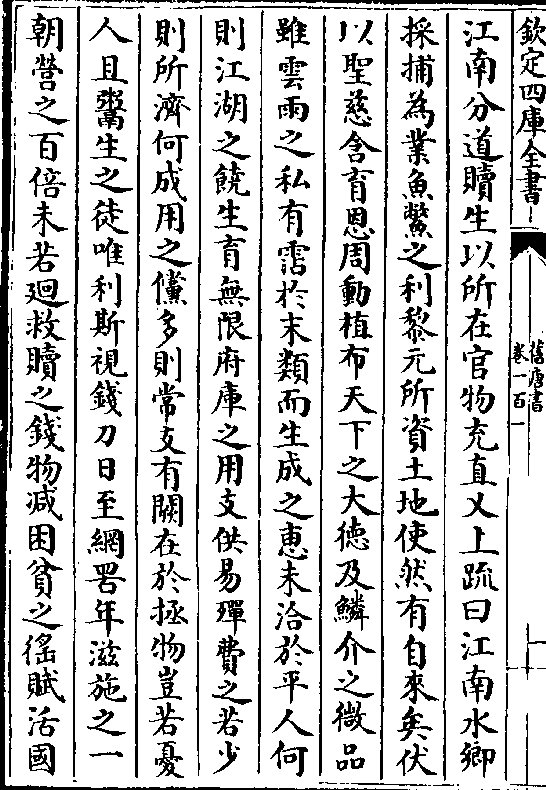 欽定四庫全書
舊唐書
卷一百一
江南分道贖生以所在官物充直乂上疏曰江南水鄉
採捕為業魚鱉之利黎元所資土地使然有自來矣伏
以聖慈含育恩周動植布天下之大德及鱗介之微品
雖雲雨之私有霑於末類而生成之恵未洽於平人何
則江湖之饒生育無限府庫之用支供易殫費之若少
則所濟何成用之儻多則常支有闕在於拯物豈若憂
人且鬻生之徒唯利斯視錢刀日至網罟年滋施之一
朝營之百倍未若廻救贖之錢物減困貧之徭賦活國